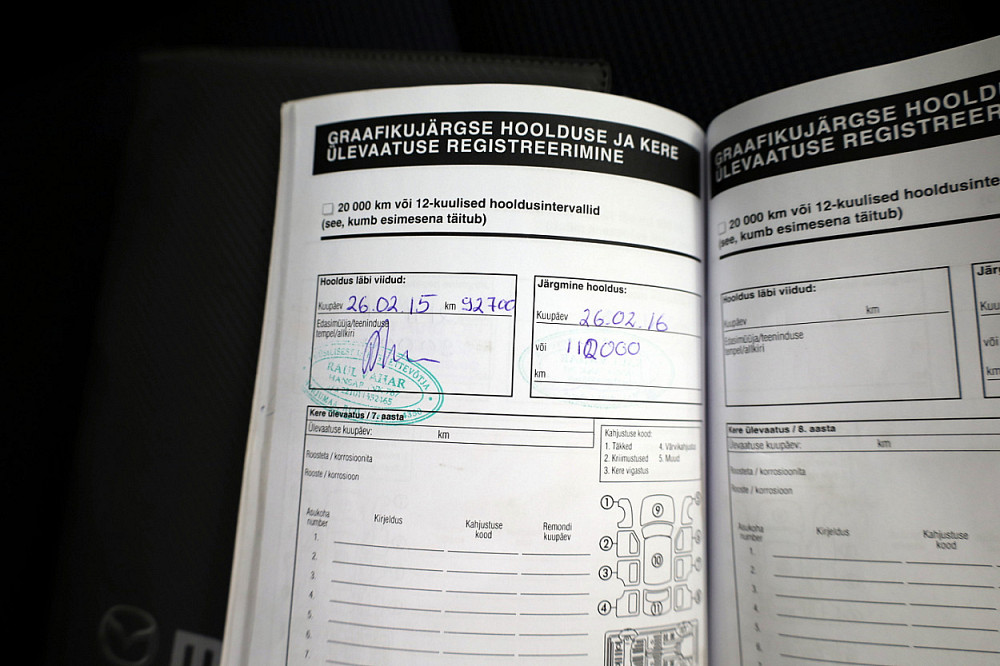 GRAAFIKUJÄRGSE HOOLDUSE JA KERE
ÜLEVAATUSE REGISTREERIMINE
20 000 km või 12-kuulised hooldusintervallid
(see, kumb esimesena täitub)
Hooldus läbi viidud:
Kuupäev 26.02.15 km 92700
Edasimüüja/teeninduse
tempel/allkiri
RAUL
HANGAR
Järgmine hooldus:
Kuupäev 26.02.16
või 112000
km
Kere ülevaatus / 7. aasta
Ülevaatuse kuupäev: km
Roosteta / korrosioonita
Rooste / korrosioon
Kahjustuse kood:
1. Täkked 4. Värvikahjustus
2. Kriimustused 5. Muud
3. Kere vigastus
Asukoha number Kirjeldus Kahjustuse kood Remondi kuupäev
1.
2.
3.
4.
5.
6.
7.
1 9
2 10
3
4 11
GRAAFIKUJÄRGSE HOOLD
ÜLEVAATUSE REGISTREER
20 000 km või 12-kuulised hooldusinte
(see, kumb esimesena täitub)
Hooldus läbi viidud:
Kuupäev km
Edasimüüja/teeninduse
tempel/allkiri
Järg
Kuu
või
km
Kere ülevaatus / 8. aasta
Ülevaatuse kuupäev: km
Roosteta / korrosioonita
Rooste / korrosioon
Asukoha number Kirjeldus Kahjustuse kood
1.
2.
3.
4.
5.
6.
7.